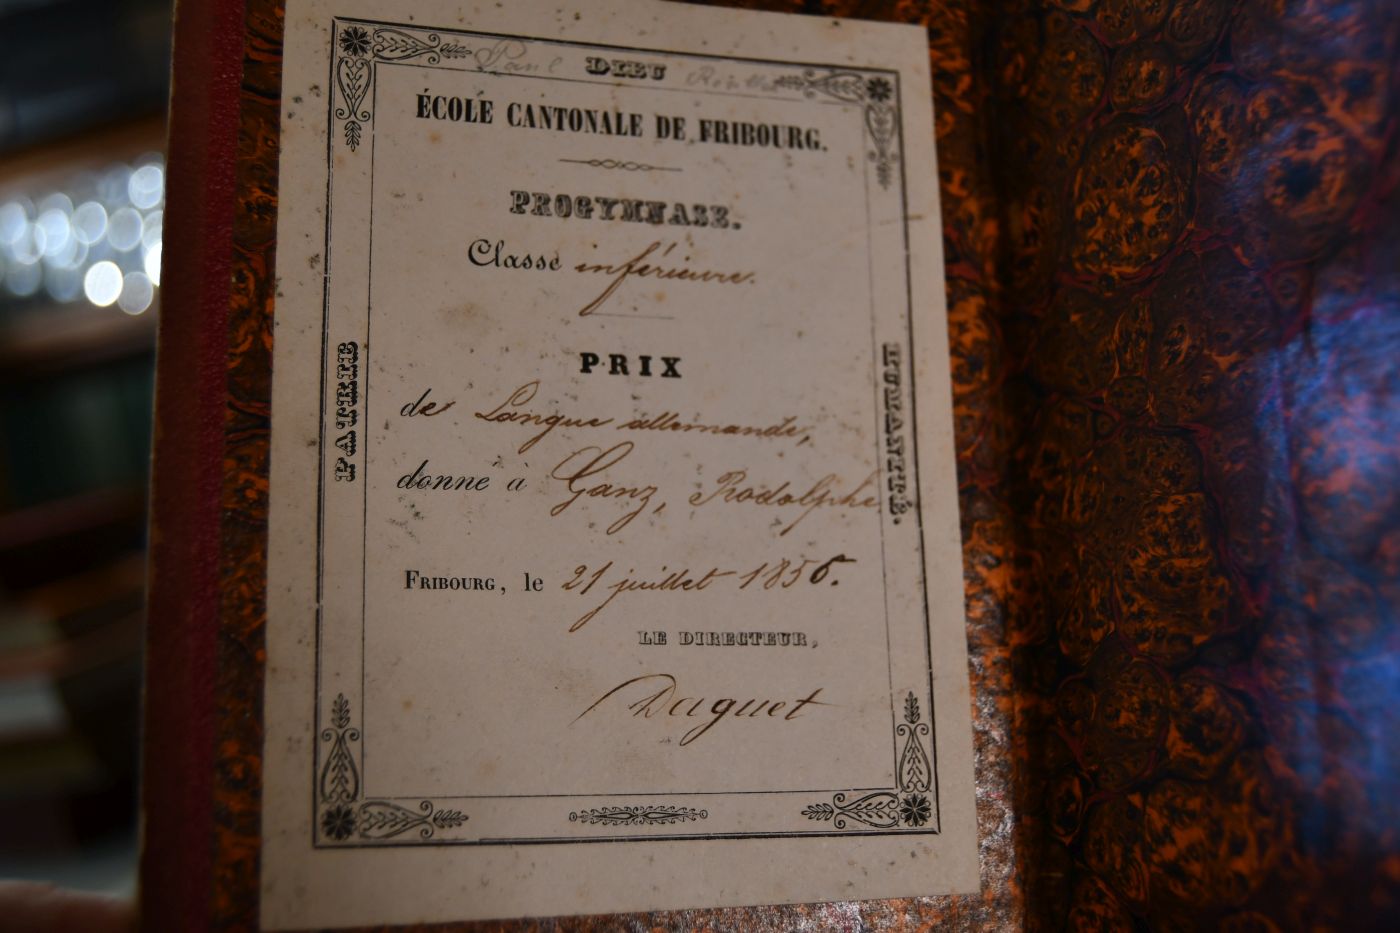 Paul
DIEU
ÉCOLE CANTONALE DE FRIBOURG.
PROGYMNASE.
Classe inférieure.
PATRIE
HUMANITÉ.
PRIX
de Langue allemande,
donné à Ganz, Rodolphe
FRIBOURG, le 21 juillet 1856.
LE DIRECTEUR,
Daguet